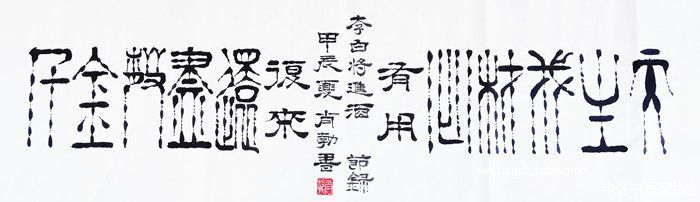 天生我材必有用
千金散盡還復來
李白將進酒 節錄
甲辰夏 肖勃書